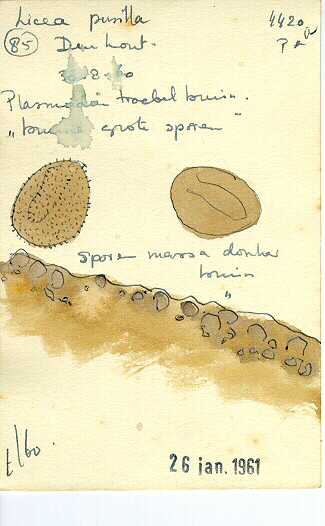 Licea pusilla
4420
85 Den hout.
30.8.60
Plasmodiën troebel bruin.
"bruine grote sporen"
sporen massa donker
bruin
"
t/60.
26 jan. 1961